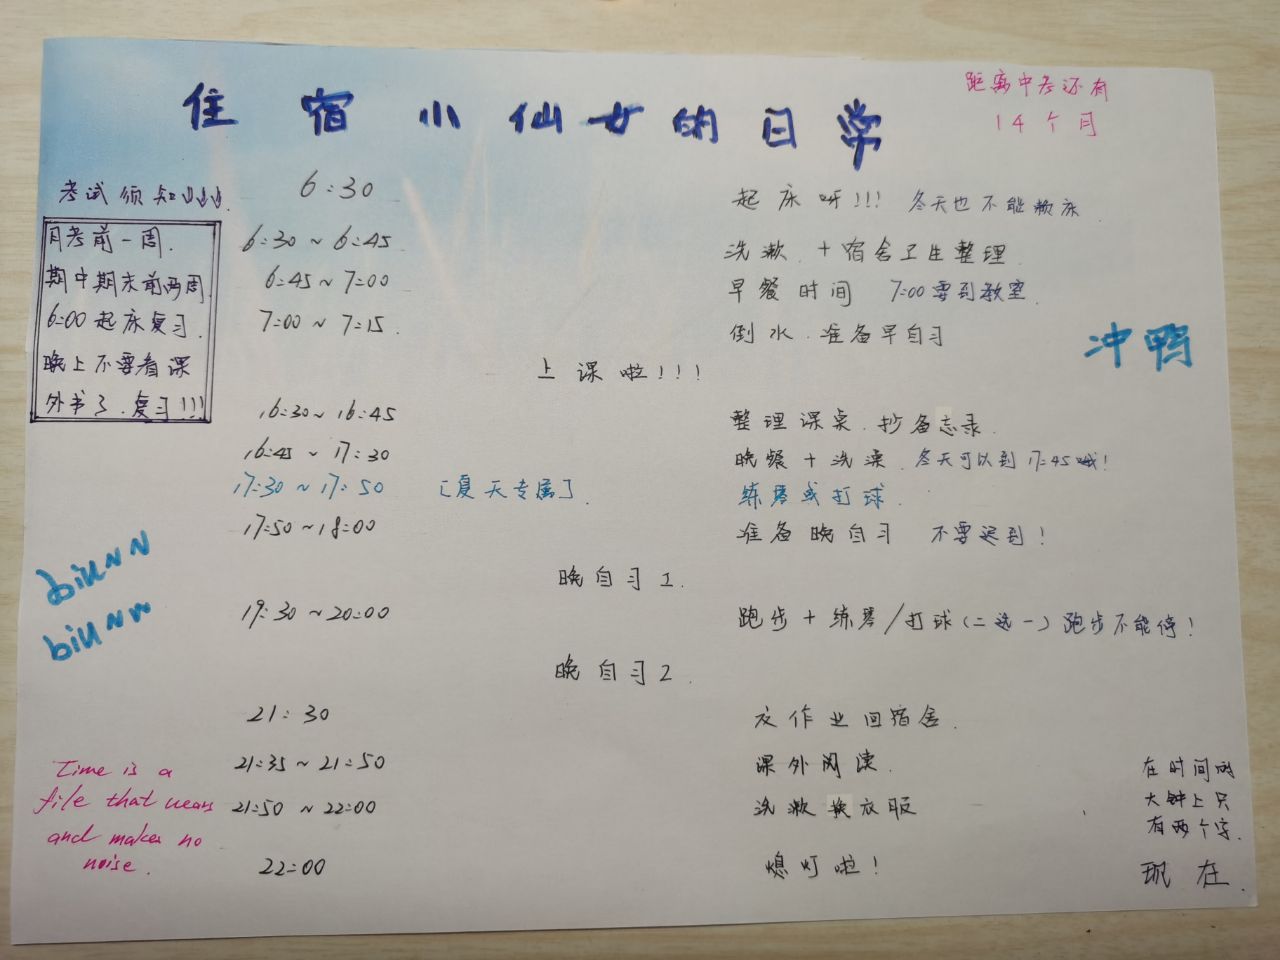 住宿小仙女的日常
距离中考还有
14个月
考试须知↓↓↓↓.
月考前一周.
期中期末前两周.
6:00起床复习.
晚上不要看课
外书了.复习!!!
6:30 起床呀!!! 冬天也不能赖床.
6:30~6:45 洗漱.+宿舍卫生整理.
6:45~7:00 早餐时间 7:00要到教室.
7:00~7:15. 倒水.准备早自习
上课啦!!!
冲鸭
16:30~16:45 整理课桌.抄备忘录.
16:45~17:30 晚餐+洗澡.冬天可以到17:45哦!
17:30~17:50 [夏天专属]. 练琴或打球.
17:50~18:00 准备晚自习 不要迟到!
晚自习1.
biu~~
biu~~
19:30~20:00 跑步+练琴/打球(二选一)跑步不能停!
晚自习2.
21:30 交作业回宿舍.
21:35~21:50 课外阅读.
21:50~22:00 洗漱换衣服
22:00 熄灯啦!
Time is a
file that wears
and makes no
noise.
在时间的
大钟上只
有两个字.
现在.